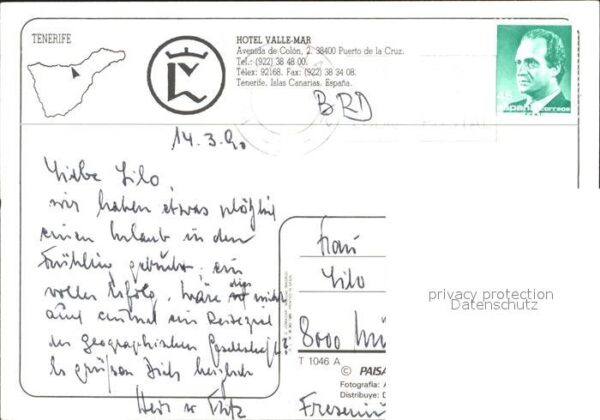 TENERIFE
HOTEL VALLE-MAR
Avenida de Colón, 2. 38400 Puerto de la Cruz.
Tel.: (922) 38 48 00.
Télex: 92168. Fax: (922) 38 34 08.
Tenerife. Islas Canarias. España.
BRD
España correos
14.3.90
Liebe Lilo,
wir haben etwas plötzlich
einen Urlaub in den
Frühling gebucht; ein
voller Erfolg. Wäre dies nicht
auch einmal ein Reiseziel
der Geographischen Gesellschaft?
Es grüßen Dich herzlich
Frau
Lilo
8000
T 1046 A
© PAISA
Fotografía: A
Distribuye: D
privacy protection
Datenschutz